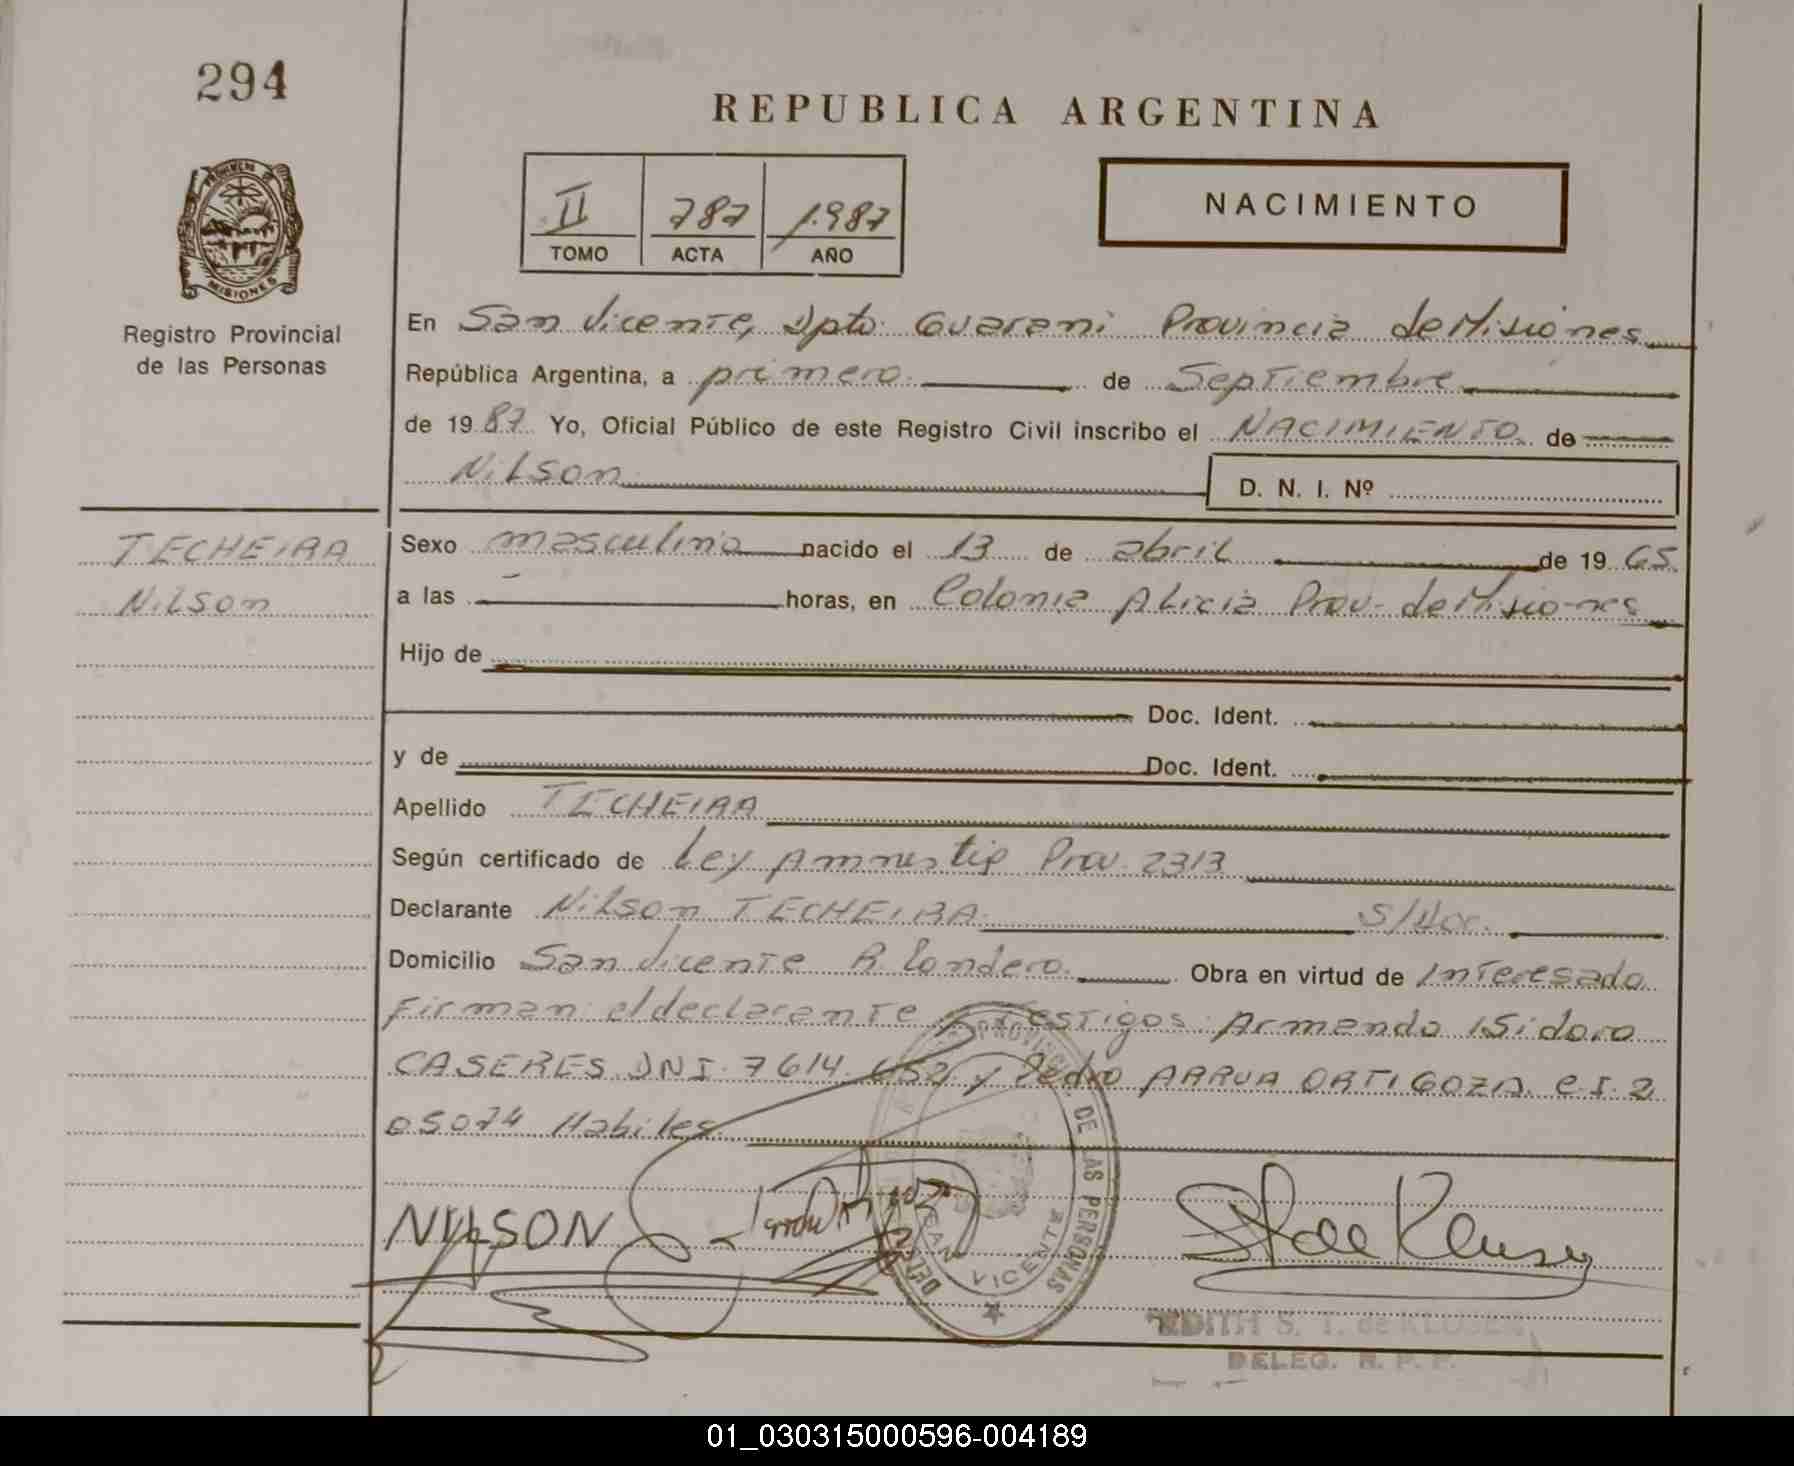 294
REPUBLICA ARGENTINA
II 787 1.987
TOMO ACTA AÑO
NACIMIENTO
PROVINCIA DE MISIONES
Registro Provincial
de las Personas
En San Vicente, Dpto. Guarani Provincia de Misiones
República Argentina, a primero de Septiembre
de 1987 Yo, Oficial Público de este Registro Civil inscribo el NACIMIENTO de
Nilson D. N. I. Nº
TECHEIRA
Nilson
Sexo masculino nacido el 13 de abril de 1965
a las horas, en Colonia Alicia Prov. de Misiones
Hijo de
Doc. Ident.
y de Doc. Ident.
Apellido TECHEIRA
Según certificado de Ley Prov. 2313
Declarante Nilson TECHEIRA S/Doc.
Domicilio San Vicente R. Londero Obra en virtud de Interesado
Firman: el declarante y testigos: Armando Isidoro
CASERES DNI. 7614.652 y Pedro ARRUA ORTIGOZA C.I. 2
05074 Habiles
NILSON
PROVINCIAL DE LAS PERSONAS
SAN VICENTE
EDITH S. T. de KLUSEN
DELEG. R. P. P.
01_030315000596-004189